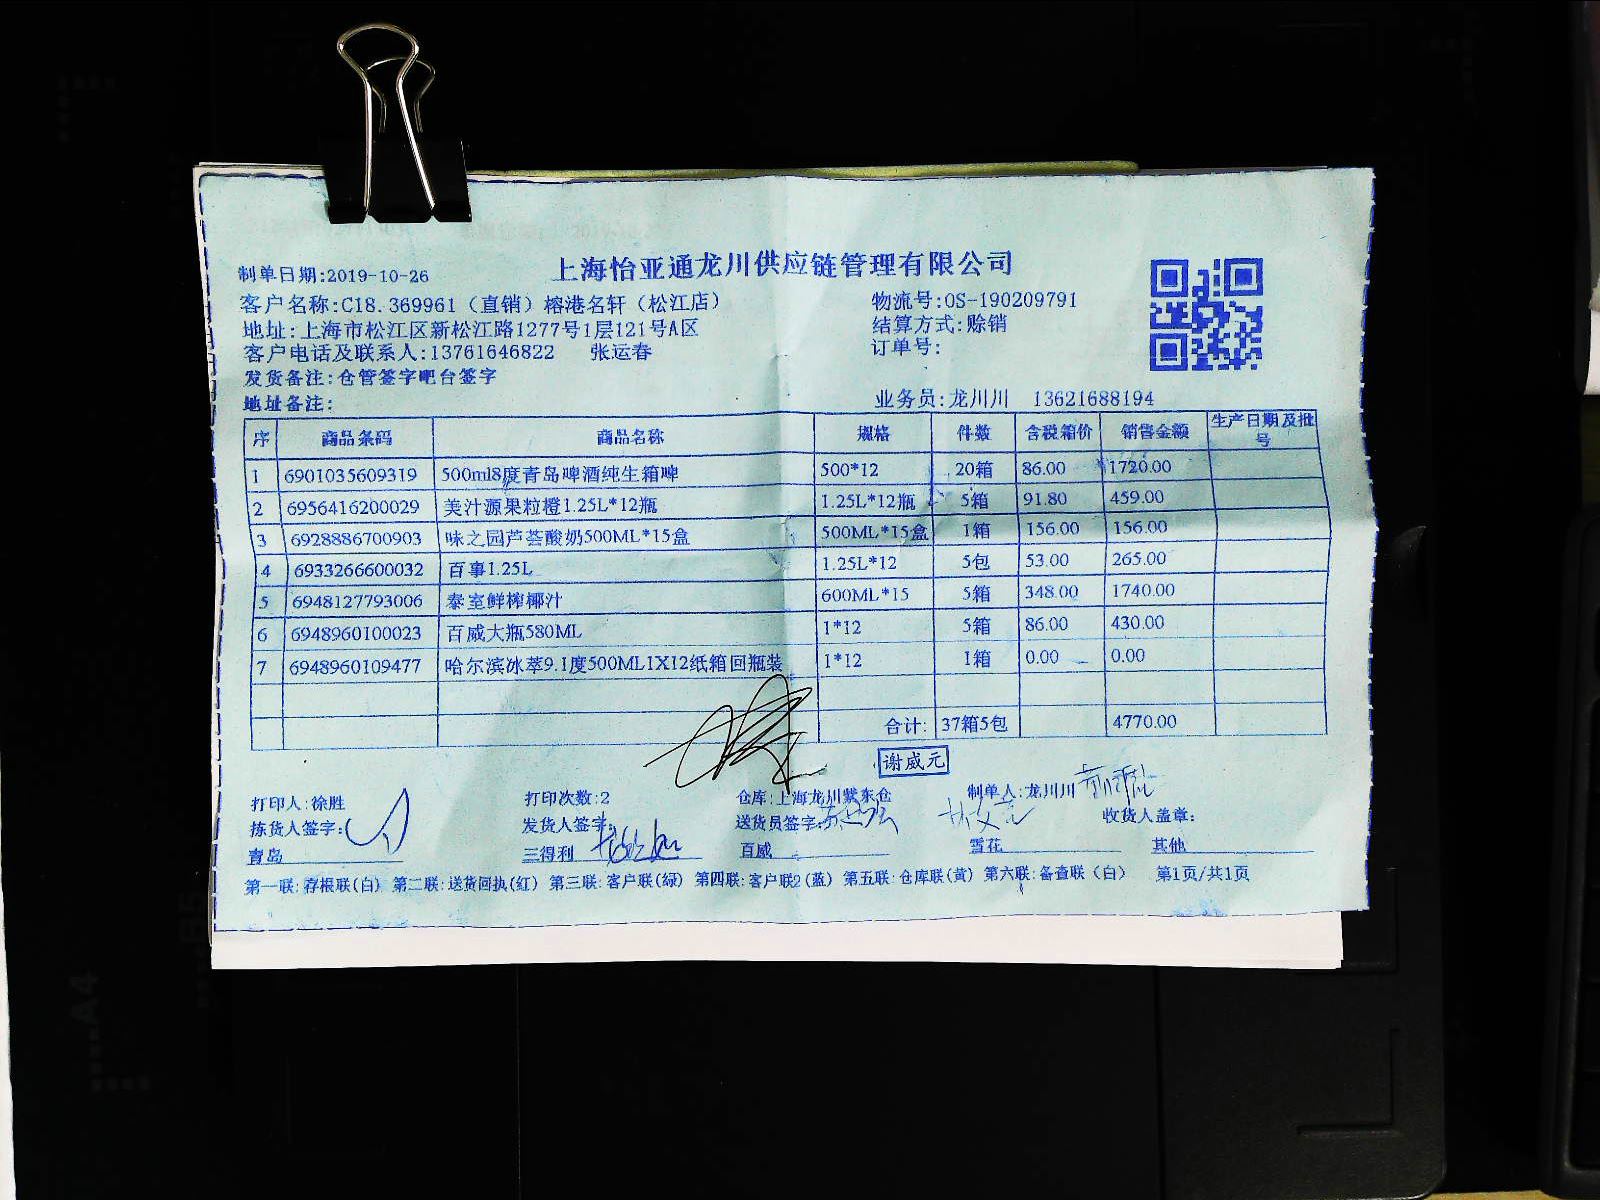 上海怡亚通龙川供应链管理有限公司
制单日期:2019-10-26
客户名称:C18.369961（直销）榕港名轩（松江店） 物流号:OS-190209791
地址:上海市松江区新松江路1277号1层121号A区 结算方式:赊销
客户电话及联系人:13761646822 张运春 订单号:
发货备注:仓管签字吧台签字
地址备注: 业务员:龙川川 13621688194
序 商品条码 商品名称 规格 件数 含税箱价 销售金额 生产日期及批号
1 6901035609319 500ml8度青岛啤酒纯生箱啤 500*12 20箱 86.00 1720.00
2 6956416200029 美汁源果粒橙1.25L*12瓶 1.25L*12瓶 5箱 91.80 459.00
3 6928886700903 味之园芦荟酸奶500ML*15盒 500ML*15盒 1箱 156.00 156.00
4 6933266600032 百事1.25L 1.25L*12 5包 53.00 265.00
5 6948127793006 泰室鲜榨椰汁 600ML*15 5箱 348.00 1740.00
6 6948960100023 百威大瓶580ML 1*12 5箱 86.00 430.00
7 6948960109477 哈尔滨冰萃9.1度500ML1X12纸箱回瓶装 1*12 1箱 0.00 0.00
合计: 37箱5包 4770.00
谢威元
打印人:徐胜 打印次数:2 仓库:上海龙川冀东仓 制单人:龙川川
拣货人签字: 发货人签字: 送货员签字: 收货人盖章:
青岛 三得利 百威 雪花 其他
第一联:存根联(白) 第二联:送货回执(红) 第三联:客户联(绿) 第四联:客户联2(蓝) 第五联:仓库联(黄) 第六联:备查联（白） 第1页/共1页
A4